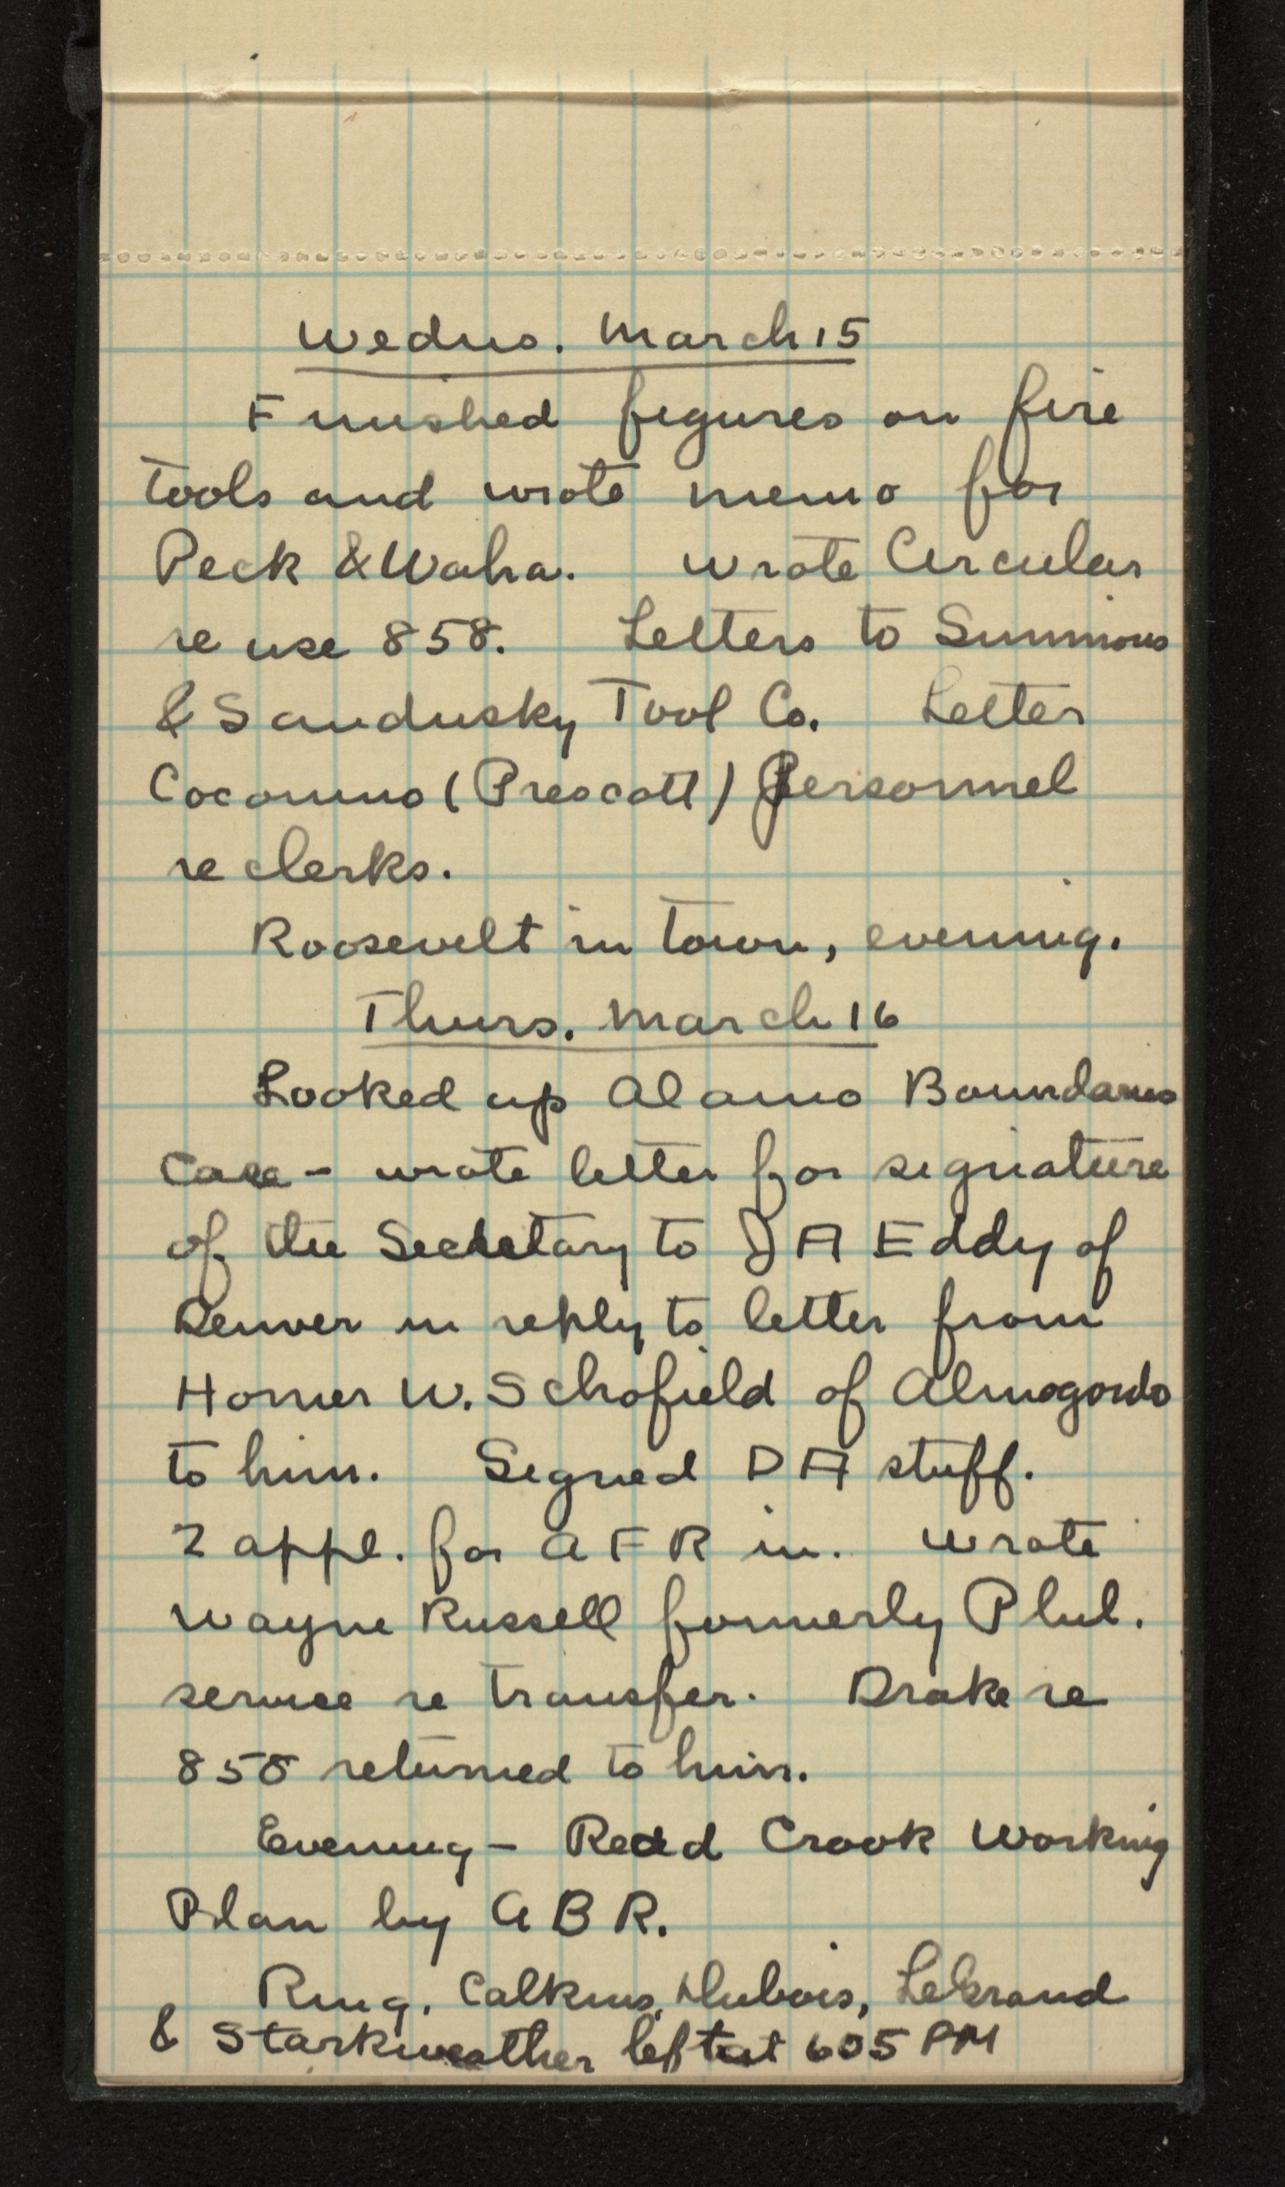 Wednes. March 15
Finished figures on fire
tools and wrote memo for
Peck & Waha. Wrote Circular
re use 858. Letters to Simmons
& Sandusky Tool Co. Letter
Coconino (Prescott) Personnel
re clerks.
Roosevelt in town, evening.
Thurs. March 16
Looked up Alamo Boundaries
Case - wrote letter for signature
of the Secretary to J A Eddy of
Denver in reply to letter from
Homer W. Schofield of Almogordo
to him. Signed D A stuff.
2 appl. for A F R in. Wrote
Wayne Russell formerly Phil.
service re transfer. Drake re
858 returned to him.
Evening - Read Crook Working
Plan by A B R.
Ring, Calkins, Dubois, LeGrand
& Starkweather left at 605 PM